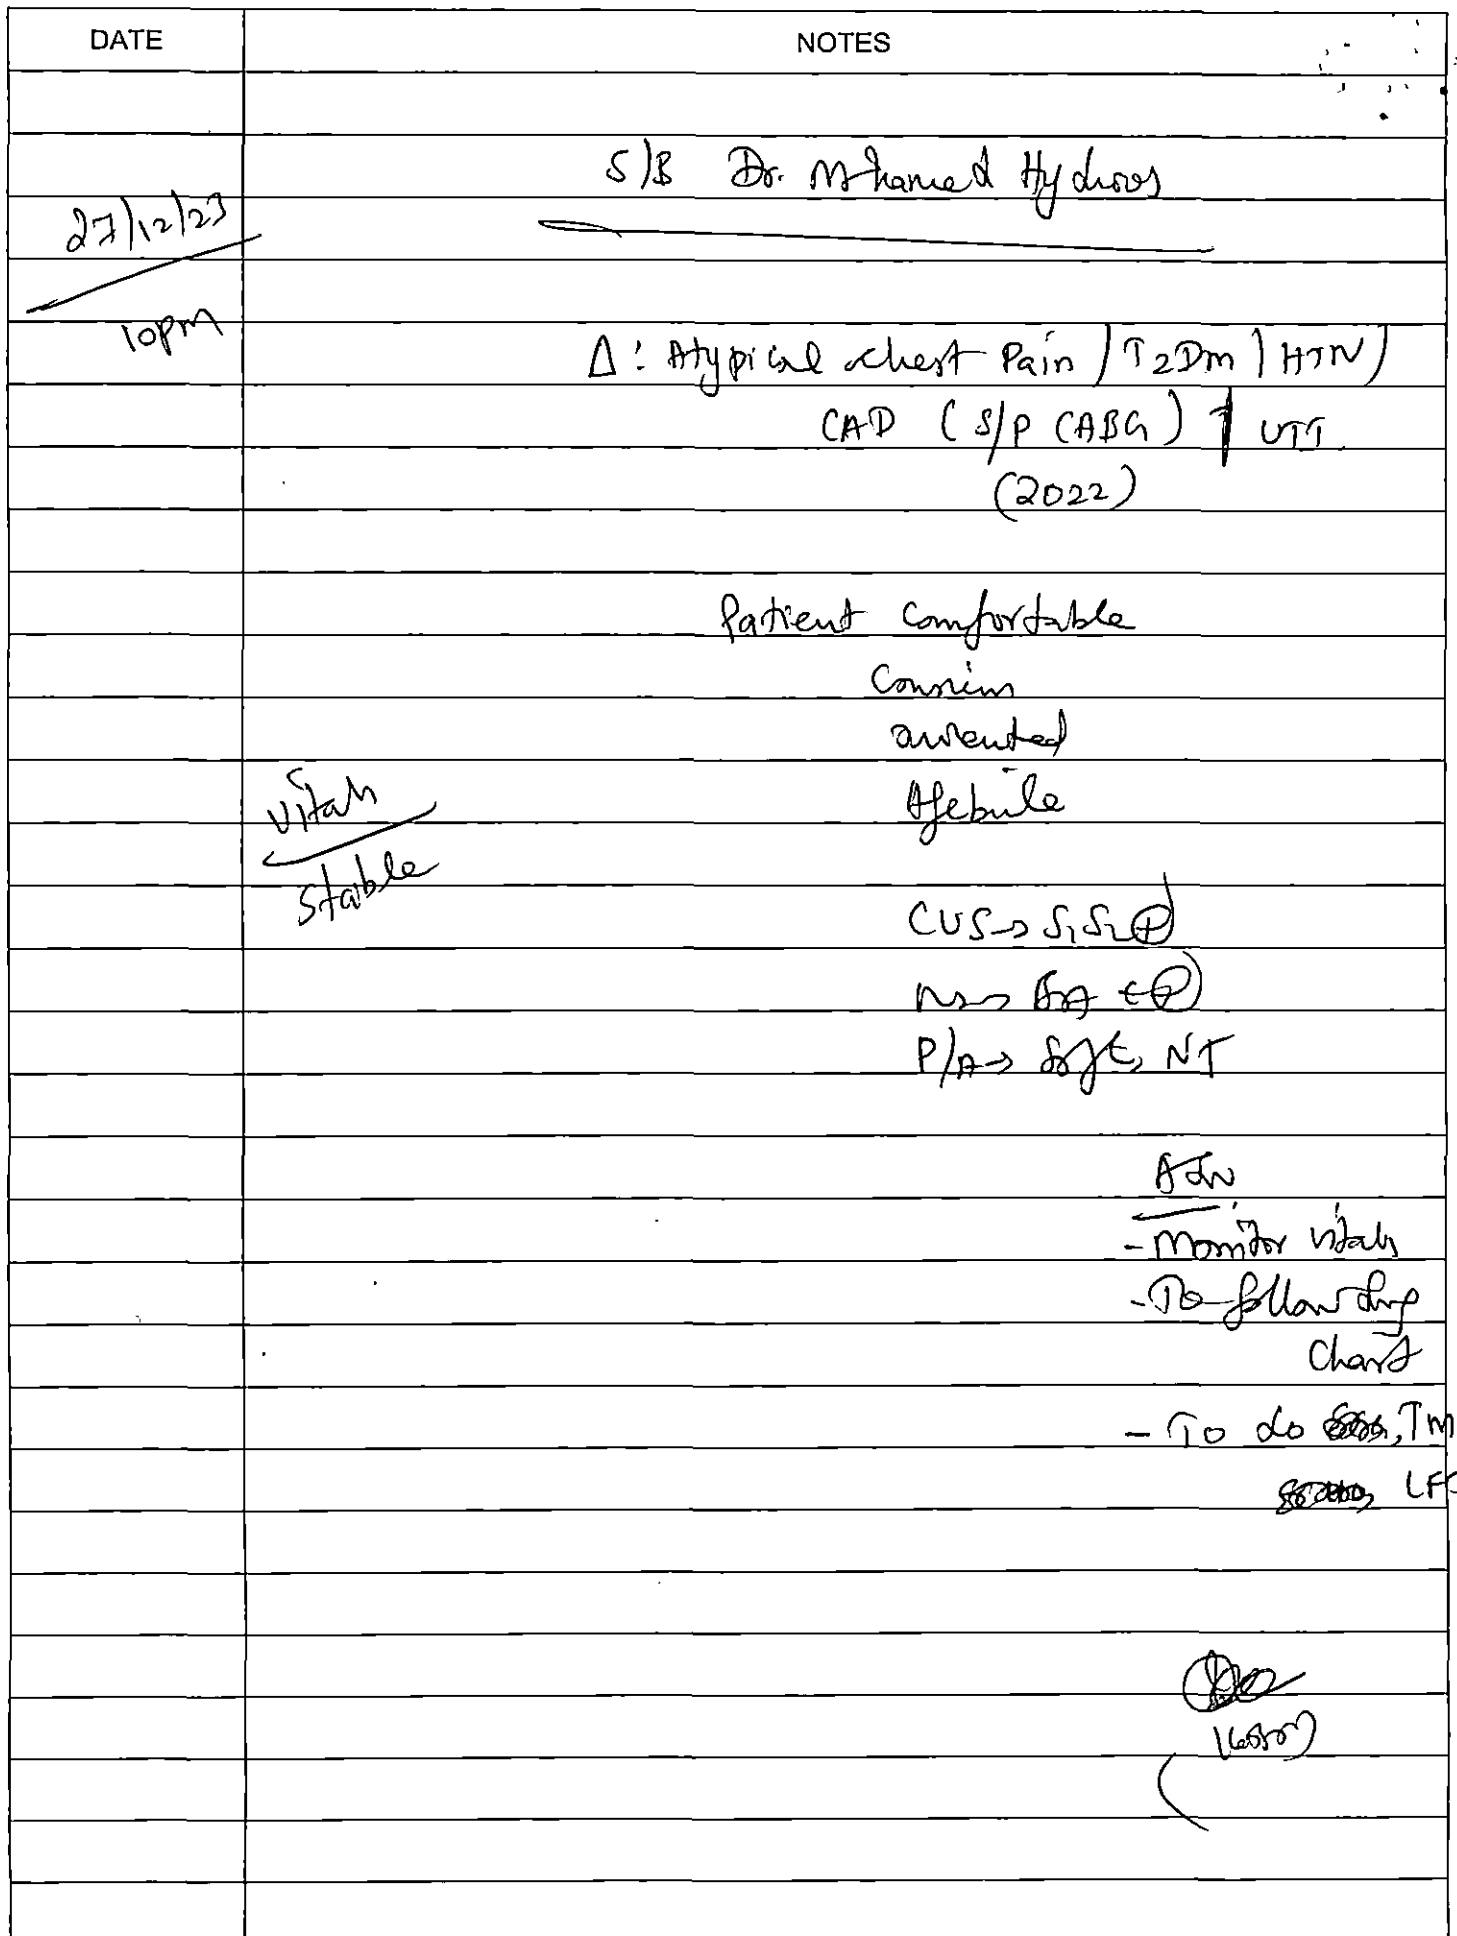 DATE NOTES
S/B Dr. Mohamed Hydroos
27/12/23
10pm
Δ: Atypical chest Pain / T2DM / HTN /
CAD (S/P CABG) / UTI
(2022)
Patient Comfortable
Conscious
oriented
Afebrile
Vitals
Stable
CVS → S1S2 ⊕
P/A → Soft, NT
Adv
- Monitor vitals
- To follow drug
Chart
- To do